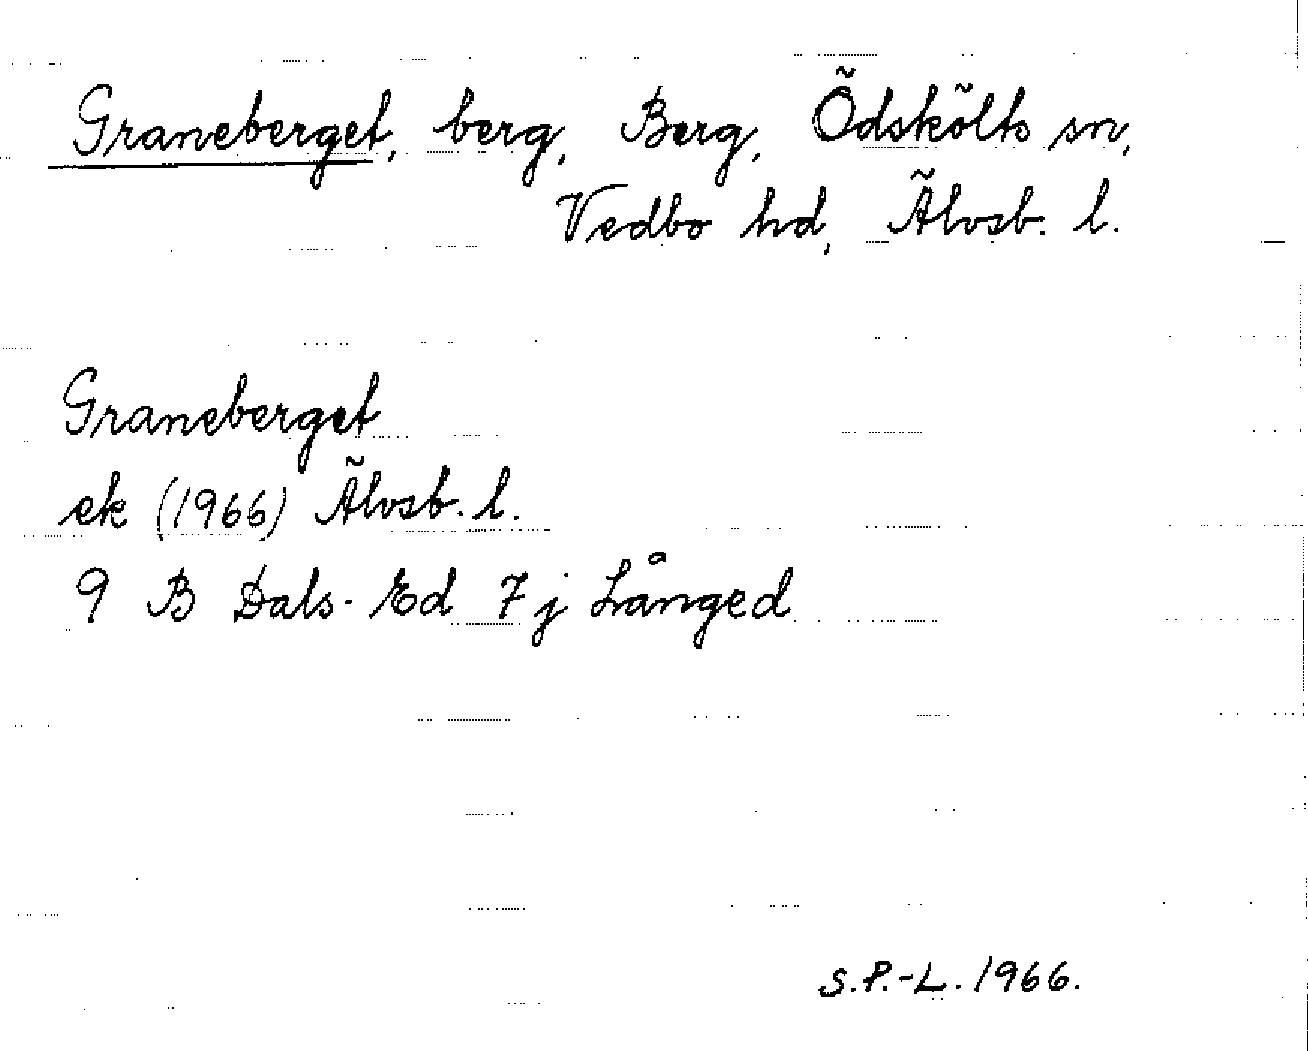 Graneberget, berg, Berg, Ödskölts sn,
Vedbo hd, Älvsb. l.
Graneberget
ek (1966) Älvsb. l.
9 B Dals-Ed 7 j Långed
S.P.-L. 1966.